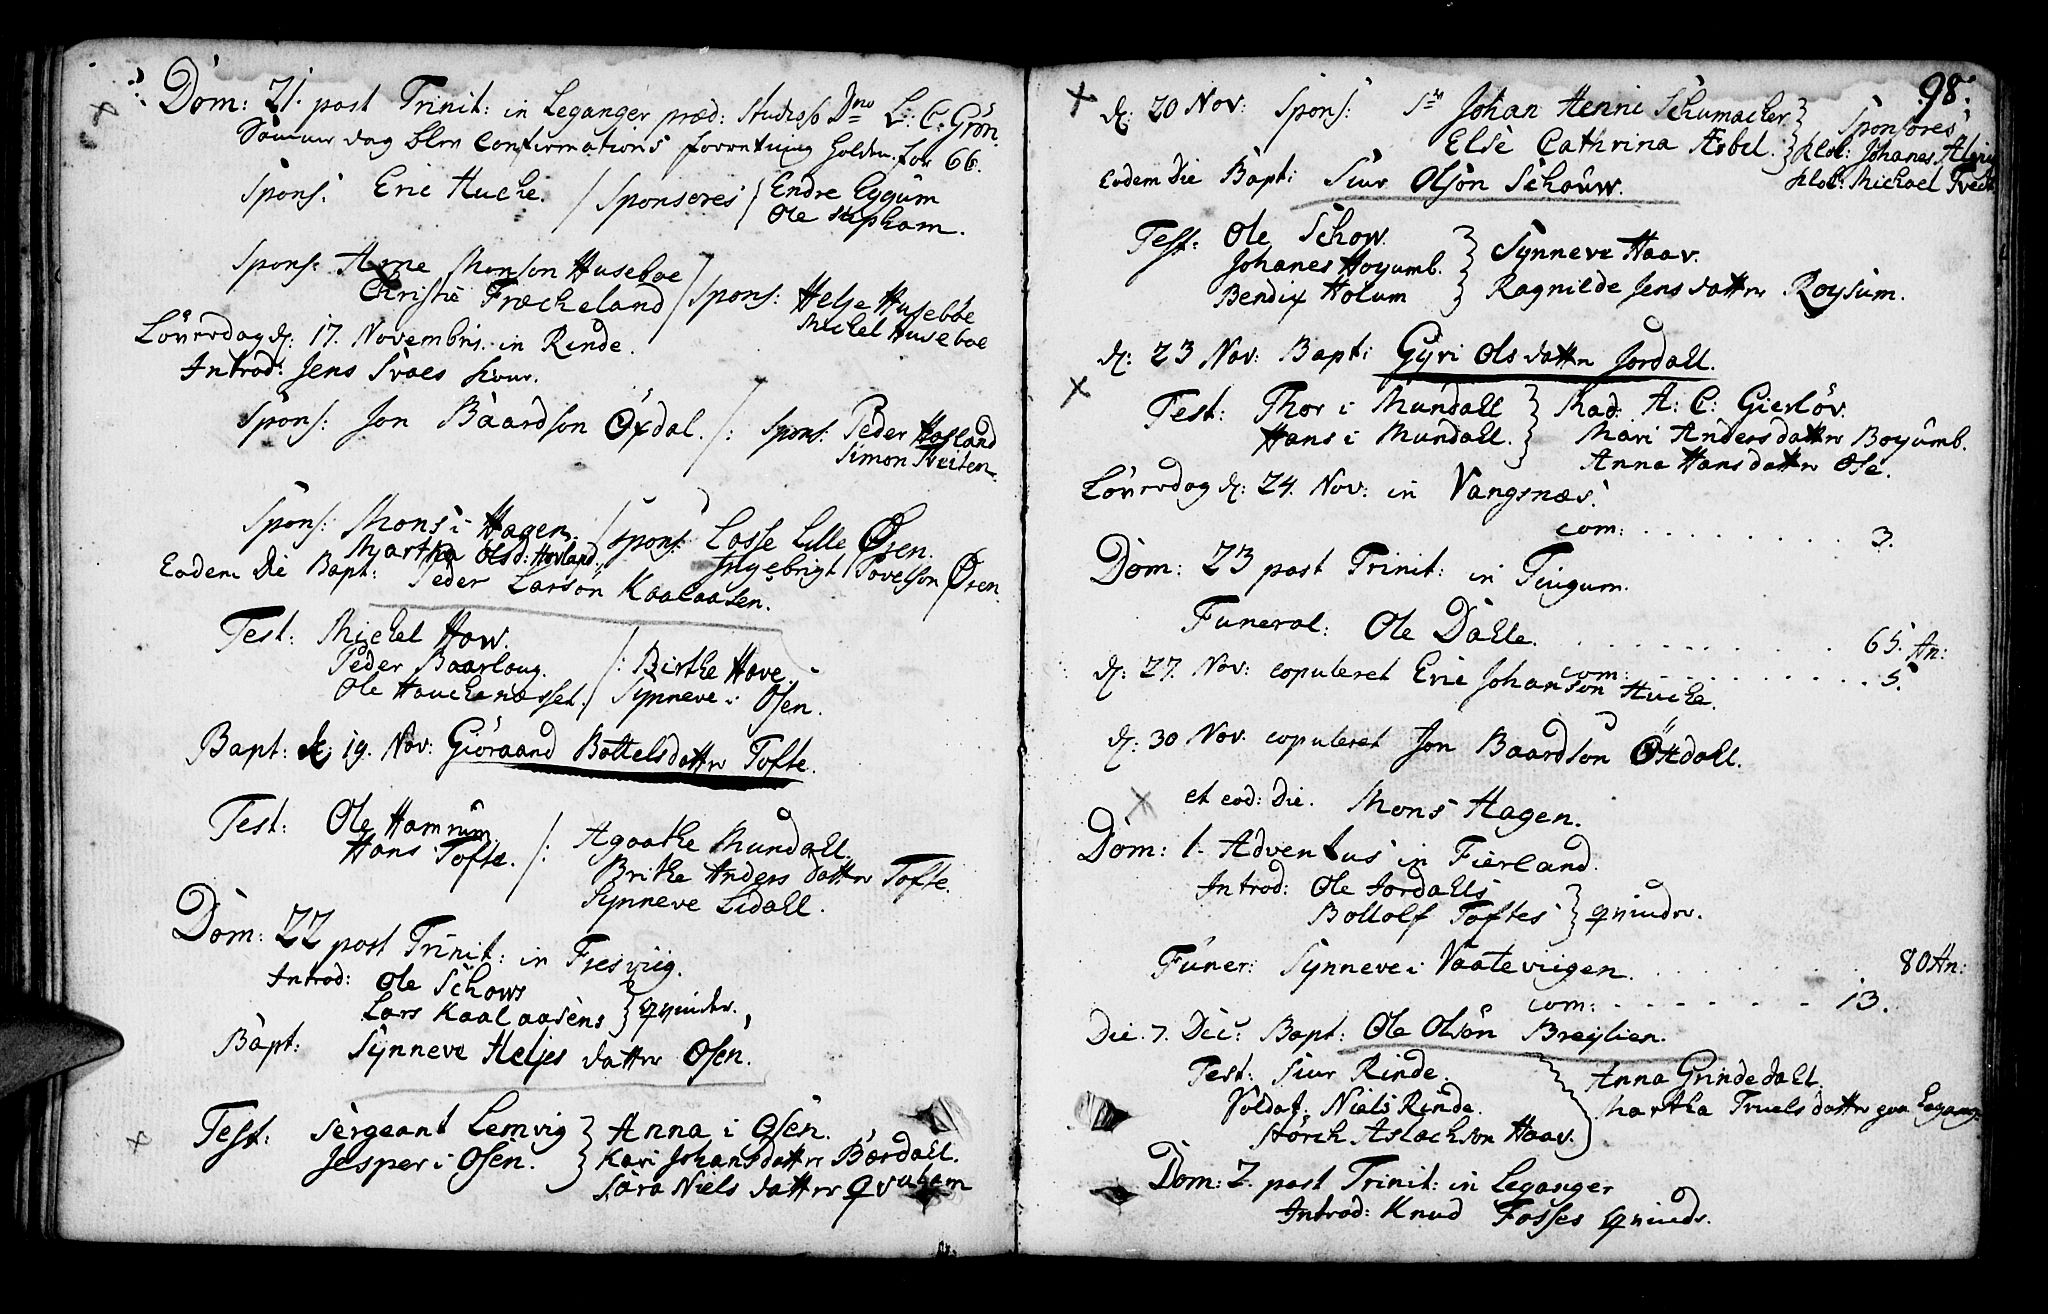 Dom: 21. post Trinit: in Leganger præd: Studioso Dno L: C: Grön.
Samme dag blev Confirmations forretning holden for 66.
Spons: Eric Huche. / Sponsores Endre Eggum
Ole Stepham.
Spons: Arne Monson Huseboe
Christie Frœcheland / Spons: Helje Huseböe
Michel Huseboe
Löverdag d: 17. Novembris in Rinde.
Introd: Jens Svaes
Spons: Jon Baardson Öxdal. /: Spons: Peder Hafland
Simon Tveiten
Spons: Mons i Hagen.
Martha Olsd: Hovland / Spons: Lasse Lille Øren.
Ingebrigt Povelson Øren.
Eodem Die Bapt: Peder Larsön Kaalaasen.
Test: Michel How.
Peder Baarloug. /: Birthe Hove.
Ole Hauchenæsset. / Synneve i Osen.
Bapt: d: 19. Nov: Giöraand Bottelsdatter Tofte.
Test: Ole Hamrum
Hans Tofte. /: Agathe Mundall.
Brithe Anders datter Tofte.
Synneve Lidall.
Dom: 22 post Trinit: in Fresviig.
Introd: Ole Schows
Lars Kaalaasens } qvinder.
Bapt: Synneve Heljes datter Osen.
Test: Sergeant Lemvig } Anna i Osen.
Jesper i Osen. } Kari Johansdatter Bærdall.
Sara Niels datter Qvaham
98.
d: 20 Nov: Spons: Sr Johan Henric Schumacher } Sponsores
Else Cathrina Æsbel. } Klok: Johanes
Klok: Michael Tveit
Eodem Die Bapt: Siur Olsön Schouw.
Test: Ole Schow. } Synneve Haav.
Johanes Hoyumb.
Bendix Holum } Ragnilde Jensdatter Roysum.
d: 23 Nov: Bapt: Gyri Olsdatter Jordall.
Test: Thor i Mundall } Mad: A: C: Gierlöv.
Hans i Mundall. } Mari Andersdatter Boyumb.
Anna Hansdatter Ose.
Löverdag d: 24. Nov: in Vangsnæs.
com: . . . . . . . . . 3.
Dom: 23 post Trinit: in Tiugum.
Funeral: Ole Dahle. . . . . . . . . . 65. An:
com: . . . . . . . . . 5.
d: 27. Nov: copuleret Eric Johanson Huche.
d: 30 Nov. copuleret Jon Baardson Öxdall.
et eod: Die. Mons Hagen.
Dom: 1. Adventus in Fierland.
Introd: Ole Jordalls
Bollolf Toftes } qvinder.
Funer: Synneve i Vaateviigen. . . . . . . . 80 An:
com: . . . . . . . 13.
Die. 7. Dec: Bapt: Ole Olsön Breylien.
Test: Siur Rinde. Anna Grindedahl.
Soldat: Niels Rinde. Martha Truels datter paa Legang:
Störch Aslachson Haav.
Dom: 2. post Trinit: in Leganger
Introd: Knud Fosses qvinde.